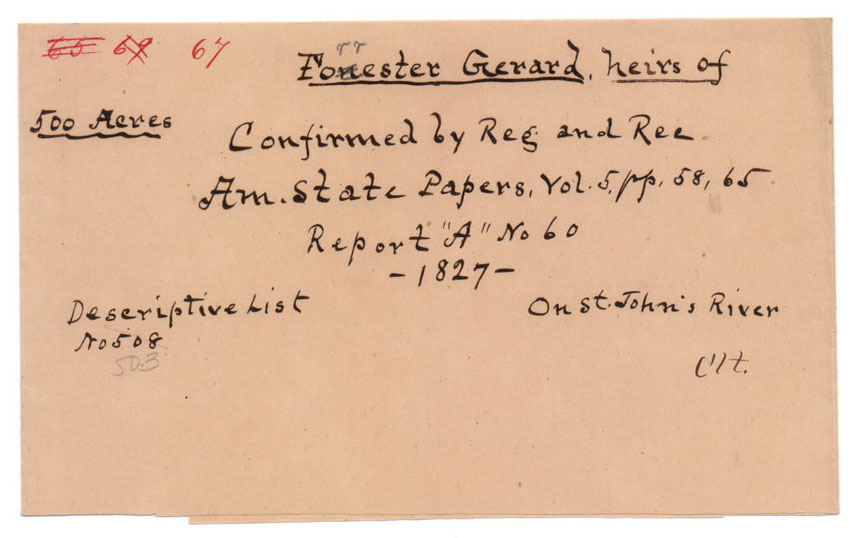 65 69 67
rr
Fonester Gerard, heirs of
500 Acres
Confirmed by Reg and Rec.
Am. State Papers, Vol. 5, pp. 58, 65
Report "A" No 60
- 1827 -
Descriptive List
No 508
503
On St. John's River